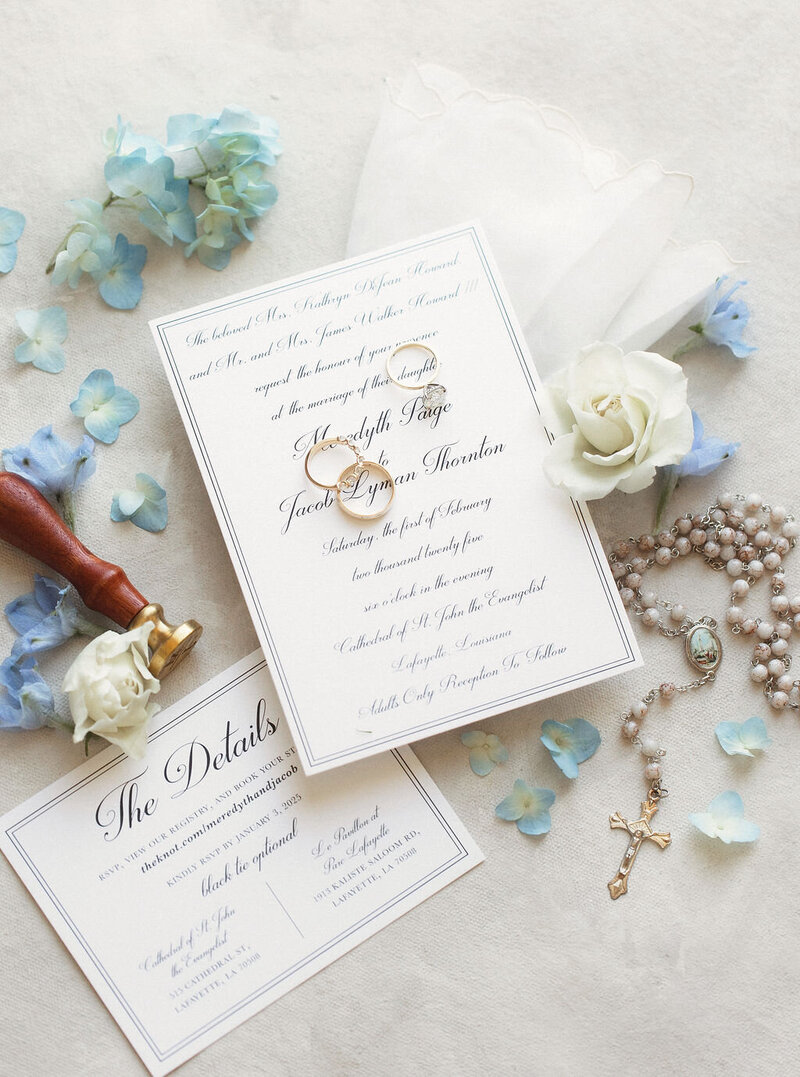 The beloved Mrs. Kathryn DeJean Howard
and Mr. and Mrs. James Walker Howard III
request the honour of your presence
at the marriage of their daughter
Meredyth Paige
to
Jacob Lyman Thornton
Saturday, the first of February
two thousand twenty five
six o'clock in the evening
Cathedral of St. John the Evangelist
Lafayette, Louisiana
Adults Only Reception To Follow
The Details
RSVP, VIEW OUR REGISTRY, AND BOOK YOUR
theknot.com/meredythandjacob
KINDLY RSVP BY JANUARY 3, 2025
black tie optional
Cathedral of St. John
the Evangelist
515 CATHEDRAL ST,
LAFAYETTE, LA 70508
Le Pavillon at
Parc Lafayette
1913 KALISTE SALOOM RD,
LAFAYETTE, LA 70508